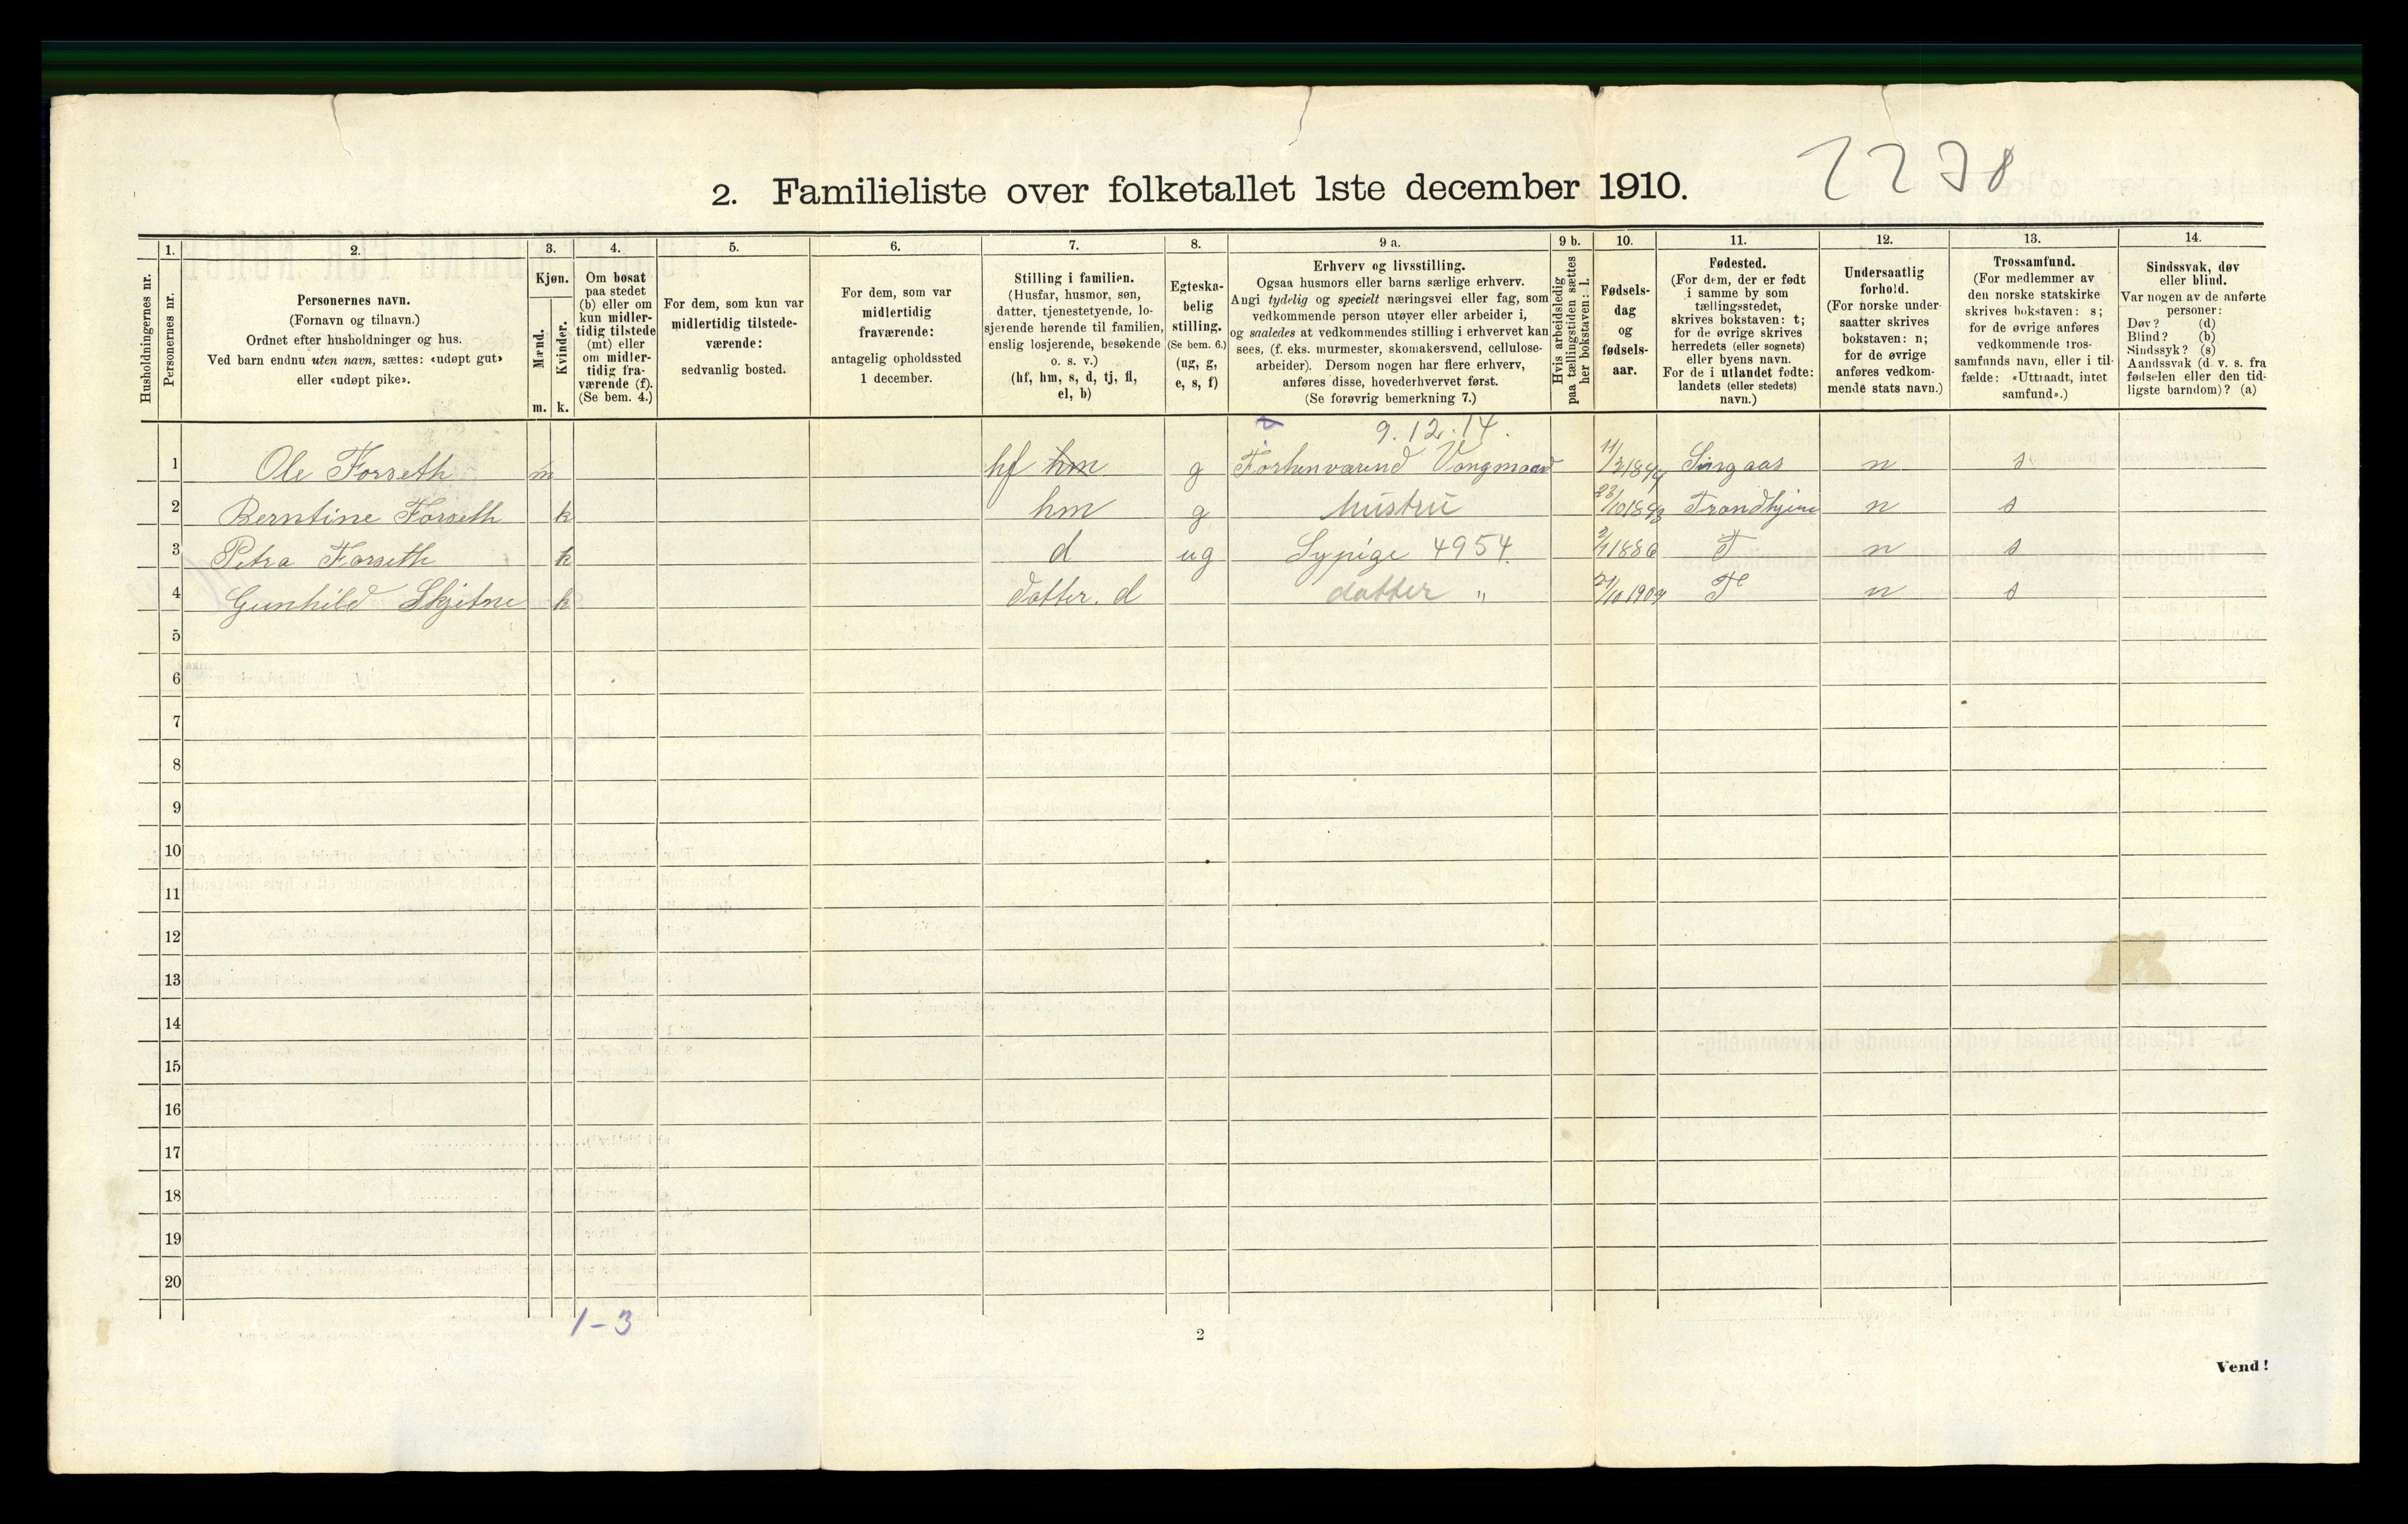 2238
2. Familieliste over folketallet 1ste december 1910.
Husholdningernes nr.
1. Personernes nr.
2. Personernes navn.
(Fornavn og tilnavn.)
Ordnet efter husholdninger og hus.
Ved barn endnu uten navn, sættes: «udøpt gut»
eller «udøpt pike».
3. Kjøn.
Mænd. Kvinder.
m. k.
4. Om bosat
paa stedet
(b) eller om
kun midler-
tidig tilstede
(mt) eller
om midler-
tidig fra-
værende (f).
(Se bem. 4.)
5. For dem, som kun var
midlertidig tilstede-
værende:
sedvanlig bosted.
6. For dem, som var
midlertidig
fraværende:
antagelig opholdssted
1 december.
7. Stilling i familien.
(Husfar, husmor, søn,
datter, tjenestetyende, lo-
sjerende hørende til familien,
enslig losjerende, besøkende
o. s. v.)
(hf, hm, s, d, tj, fl,
el, b)
8. Egteska-
belig
stilling.
(Se bem. 6.)
(ug, g,
e, s, f)
9 a. Erhverv og livsstilling.
Ogsaa husmors eller barns særlige erhverv.
Angi tydelig og specielt næringsvei eller fag, som
vedkommende person utøver eller arbeider i,
og saaledes at vedkommendes stilling i erhvervet kan
sees, (f. eks. murmester, skomakersvend, cellulose-
arbeider). Dersom nogen har flere erhverv,
anføres disse, hovederhvervet først.
(Se forøvrig bemerkning 7.)
9 b. Hvis arbeidsledig
paa tællingstiden sættes
her bokstaven: l.
10. Fødsels-
dag
og
fødsels-
aar.
11. Fødested.
(For dem, der er født
i samme by som
tællingsstedet,
skrives bokstaven: t;
for de øvrige skrives
herredets (eller sognets)
eller byens navn.
For de i utlandet fødte:
landets (eller stedets)
navn.)
12. Undersaatlig
forhold.
(For norske under-
saatter skrives
bokstaven: n;
for de øvrige
anføres vedkom-
mende stats navn.)
13. Trossamfund.
(For medlemmer av
den norske statskirke
skrives bokstaven: s;
for de øvrige anføres
vedkommende tros-
samfunds navn, eller i til-
fælde: «Uttraadt, intet
samfund».)
14. Sindssvak, døv
eller blind.
Var nogen av de anførte
personer:
Døv? (d)
Blind? (b)
Sindssyk? (s)
Aandssvak (d. v. s. fra
fødselen eller den tid-
ligste barndom)? (a)
9.12.14.
1 Ole Forseth m hf hm g Forhenværend Vongmand Singaas n s
2 Berntine Forseth k hm g hustru Trondhjem n s
3 Petra Forseth k d ug Sypige 4954. 1886 T n s
4 Gunhild Skjetne k datter. d datter " T n s
5
6
7
8
9
10
11
12
13
14
15
16
17
18
19
20
1-3
2
Vend!